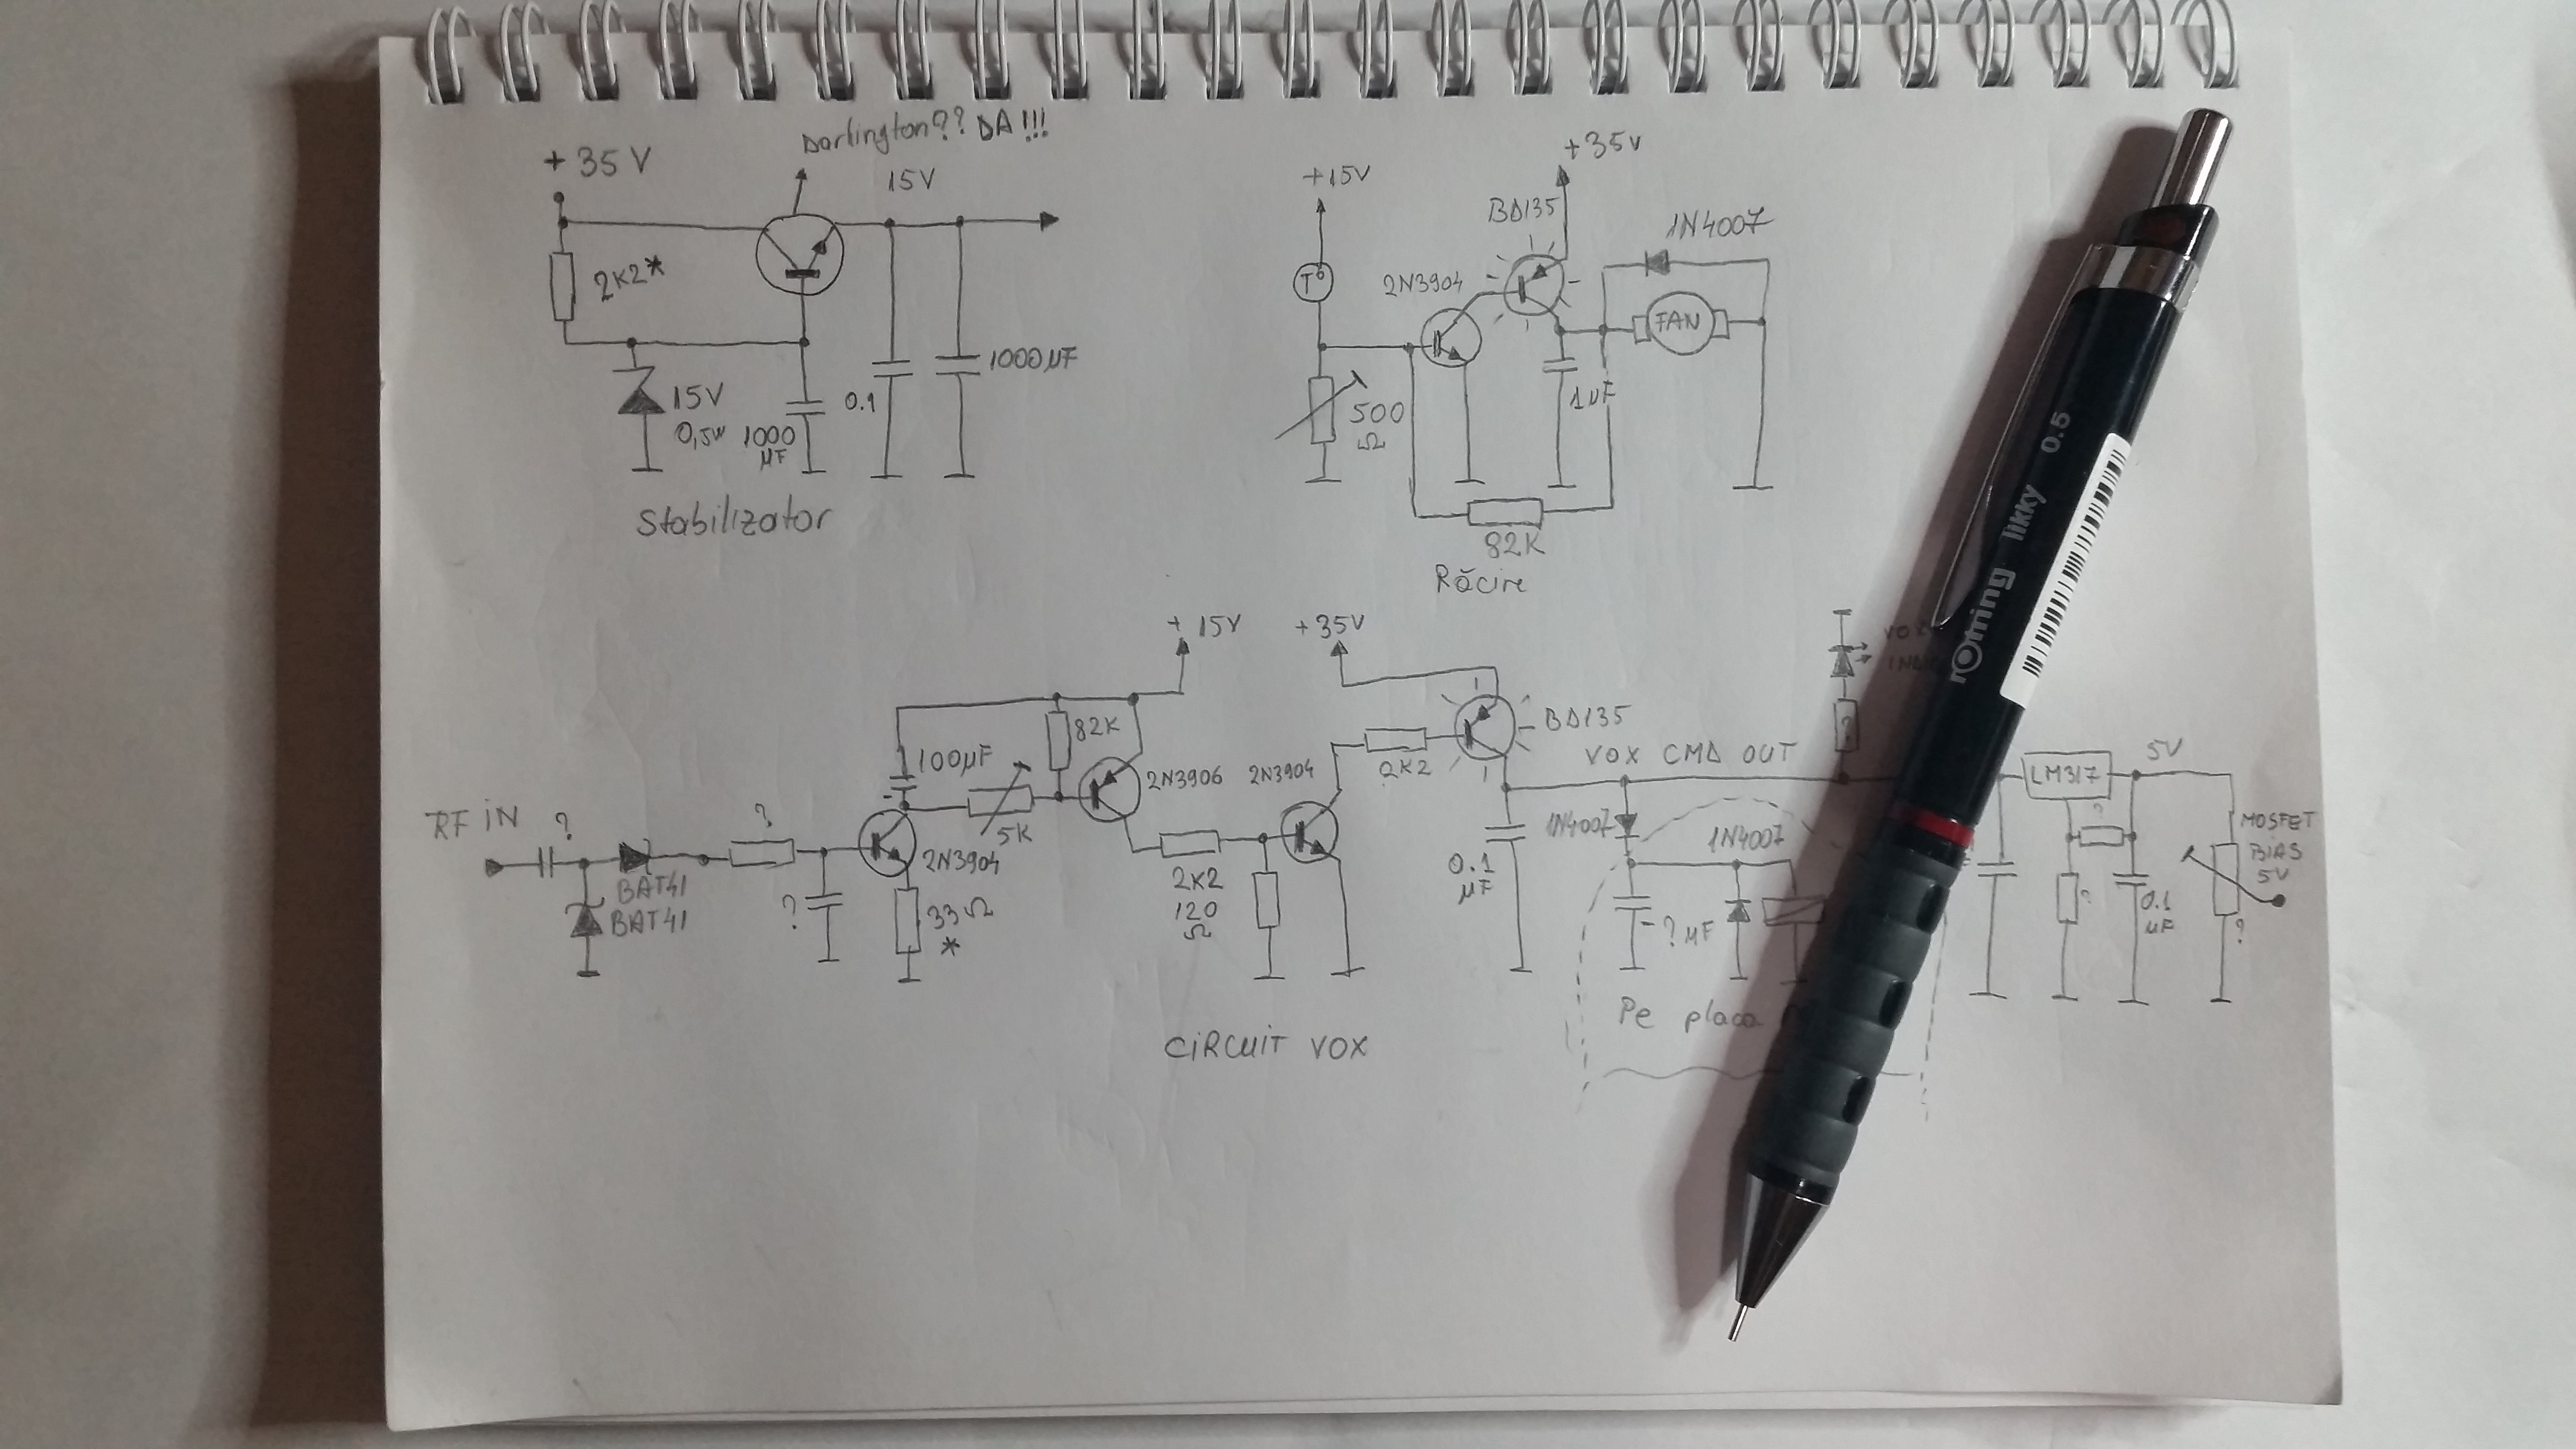 Darlington?? DA!!!
+35V
15V
2K2*
15V
0,5W
1000
µF
0.1
1000µF
Stabilizator
+15V
+35V
BD135
1N4007
T°
2N3904
FAN
500
Ω
1µF
82K
Răcire
+15V
+35V
100µF
82K
2N3906
2N3904
5K
2K2
BD135
VOX CMD OUT
RF IN
?
?
BAT41
BAT41
?
2N3904
33Ω
*
2K2
120
Ω
0.1
µF
1N4007
1N4007
-?µF
Pe placa
VOX
?
LM317
5V
?
?
0.1
µF
MOSFET
BIAS
5V
?
CIRCUIT VOX
rotring tikky 0.5